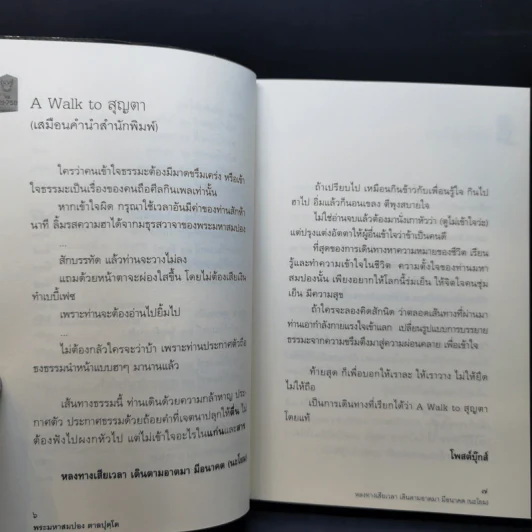 A Walk to สุญตา
(เสมือนคำนำสำนักพิมพ์)
ใครว่าคนเข้าใจธรรมะต้องมีมาดขรึมเคร่ง หรือเข้า
ใจธรรมะเป็นเรื่องของคนถือศีลกินเพลเท่านั้น
หากเข้าใจผิด กรุณาใช้เวลาอันมีค่าของท่านสักห้า
นาที ลิ้มรสความฮาได้จากมธุรสวาจาของพระมหาสมปอง
...
สักบรรทัด แล้วท่านจะวางไม่ลง
แถมด้วยหน้าตาจะผ่องใสขึ้น โดยไม่ต้องเสียเงิน
ทำเบบี้เฟซ
เพราะท่านจะต้องอ่านไปยิ้มไป
...
ไม่ต้องกลัวใครจะว่าบ้า เพราะท่านประกาศตัวถือ
ธงธรรมนำหน้าแบบฮาๆ มานานแล้ว
เส้นทางธรรมนี้ ท่านเดินด้วยความกล้าหาญ ประ
กาศตัว ประกาศธรรมด้วยถ้อยคำที่เจตนาปลุกให้ตื่น ไม่
ต้องฟังไปผงกหัวไป แต่ไม่เข้าใจอะไรในแก่นและสาร
หลงทางเสียเวลา เดินตามอาตมา มีอนาคต (นะโยม)
๖
พระมหาสมปอง ตาลปุตฺโต
ถ้าเปรียบไป เหมือนกินข้าวกับเพื่อนรู้ใจ กินไป
ฮาไป อิ่มแล้วก็นอนเขลง ตีพุงสบายใจ
ไม่ใช่อ่านจบแล้วต้องมานั่งเกาหัวว่า (ดูไม่เข้าใจว่ะ)
แต่ปรุงแต่งอัตตาให้ผู้อื่นเข้าใจว่าข้าเป็นคนดี
ที่สุดของการเดินทางหาความหมายของชีวิต เรียน
รู้และทำความเข้าใจในชีวิต ความตั้งใจของท่านมหา
สมปองนั้น เพียงอยากให้โลกนี้ร่มเย็น ให้จิตใจคนชุ่ม
เย็น มีความสุข
ถ้าใครจะลองคิดสักนิด ว่าตลอดเส้นทางที่ผ่านมา
ท่านเอากำลังกายแรงใจเข้าแลก เปลี่ยนรูปแบบการบรรยาย
ธรรมะจากความขรึมตึงมาสู่ความผ่อนคลาย เพื่อเข้าใจ
ท้ายสุด ก็เพื่อบอกให้เราละ ให้เราวาง ไม่ให้ยึด
ไม่ให้ถือ
เป็นการเดินทางที่เรียกได้ว่า A Walk to สุญตา
โดยแท้
โพสต์บุ๊กส์
๗
หลงทางเสียเวลา เดินตามอาตมา มีอนาคต (นะโยม)